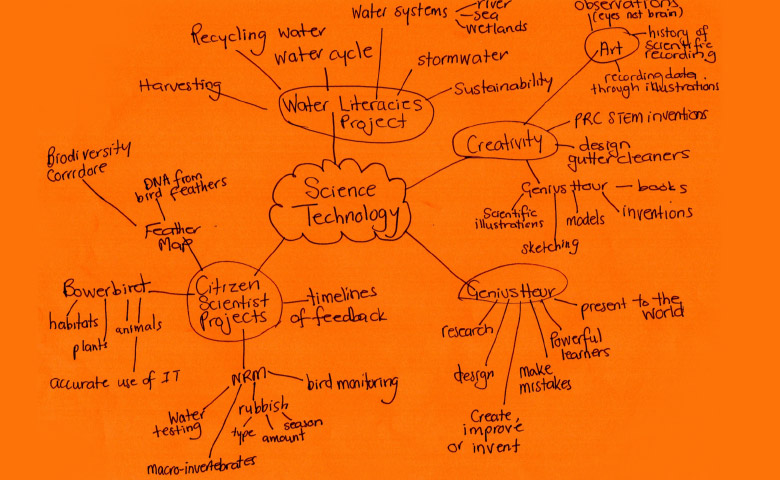 Water systems
river
sea
wetlands
Recycling water
water cycle
stormwater
Harvesting
Sustainability
Water Literacies
Project
observations
(eyes not brain)
Art
history of
scientific
recording
recording data
through illustrations
PRC STEM inventions
Creativity
design
gutter cleaners
Genius Hour
books
Scientific
illustrations
models
inventions
sketching
Science
Technology
Biodiversity
Corridore
DNA from
bird feathers
Feather
Map
Citizen
Scientist
Projects
timelines
of feedback
Bowerbird
habitats
plants
animals
accurate use of IT
NRM
bird monitoring
Water
testing
rubbish
type
amount
season
macro-invertebrates
Genius Hour
present to the
world
research
Powerful
learners
design
make
mistakes
Create,
improve
or invent